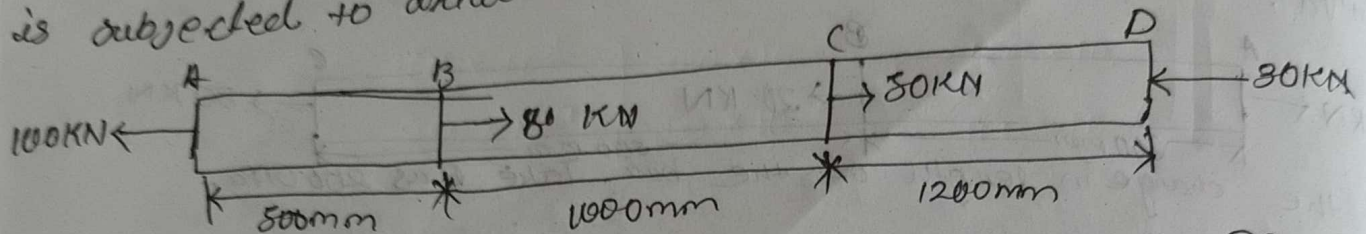 is subjected to
A B C D
100KN 80 KN 50KN 30KN
500mm 1000mm 1200mm